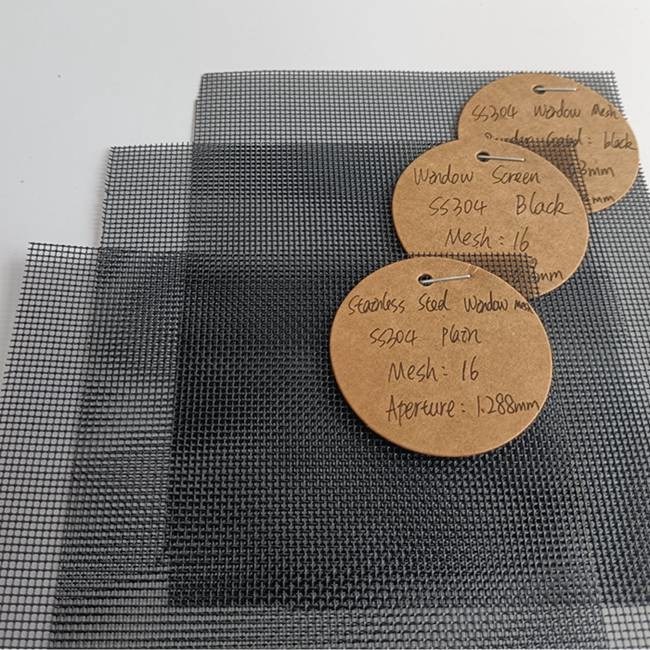 SS304 Window Mesh
Powder Coated: black
3mm
mm
Window Screen
SS304 Black
Mesh: 16
3mm
Stainless Steel Window Mesh
SS304 Plain
Mesh: 16
Aperture: 1.288mm